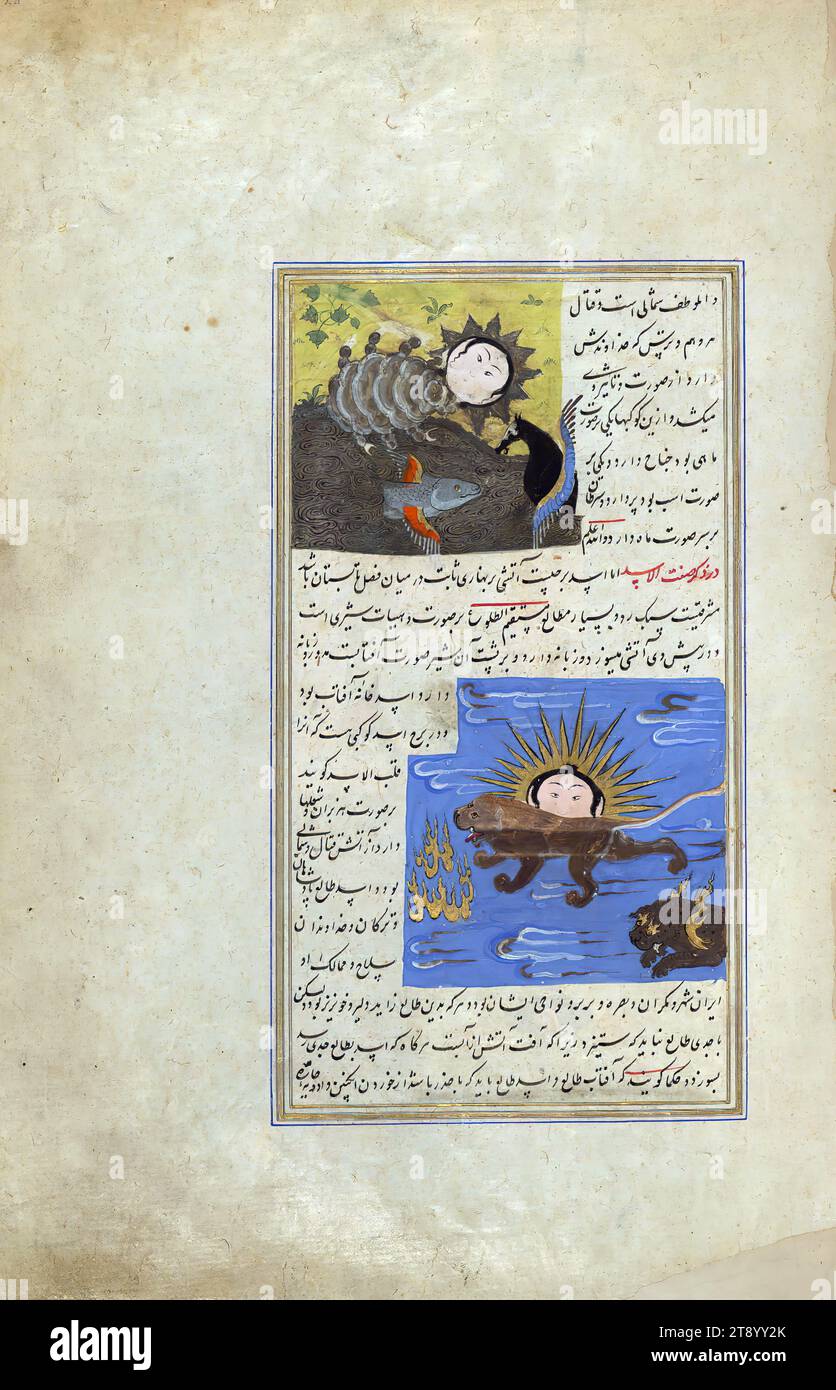 است و قتال
که خداوندش
دارد از صورت و تاثیر وی
میکشد و ازین کوکبها یکی بر صورت
ماهی بود جناح دارد و یکی بر
صورت اسب بود پر دارد و سرطان
بر سر صورت ماه دارد والله اعلم
در ذکر صفت الاسد اما اسد برجیست آتشی بهاری ثابت در میان فصل تابستان باشد
مشرقیست سبک رو و بسیار مطالع مستقیم الطلوع بر صورت و هیات شیری است
در پیش وی آتشی میسوزد و زبانه دارد و بر پشت آن شیر صورت آفتابست مدور زبانه
دارد اسد خانه آفتاب بود
و در برج اسد کوکبی هست که آنرا
قلب الاسد کویند
بر صورت هزبران و شعلها
دارد از آتش قتال و شمالی
بود و اسد طالع پادشاهان
و ترکان و خداوندان
سلاح و ممالک
ایران شهر و مکران و بصره و بربر و نواحی ایشان بود و هرکه بدین طالع زاید دلیر و خونریز بود لیکن
با جدی طالع نباید که ستیزد زیرا که آفت آتش از آبست هرگاه که اسد بطالع جدی رسد
بسوزد و حکما کویند که آفتاب طالع و اسد طالع باید که با حذر باشد از خوردن
alamy
Image ID: 2T8YY2K
www.alamy.com